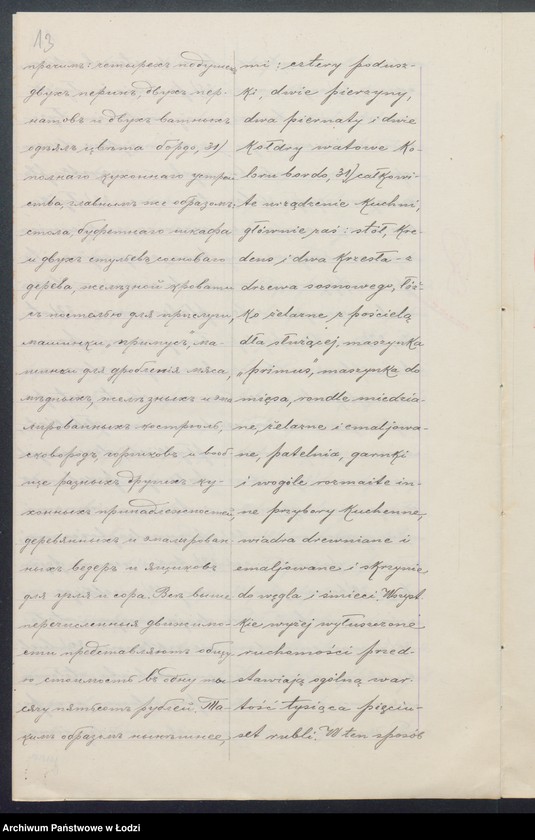 13
прочимъ: четырехъ подушекъ,
двухъ перинъ, двухъ пер-
натовъ и двухъ ватныхъ
одѣялъ цвѣта бордо, 31/
полнаго кухоннаго устрой
ства, главнымъ же образомъ:
стола, буфетнаго шкафа
и двухъ стульевъ сосноваго
дерева, желѣзной кровати
съ постелью для прислуги,
машинки „примусъ", ма-
шинки для дробленія мяса,
мѣдныхъ, желѣзныхъ и эма
лированныхъ кострюль,
сковородъ, горшковъ и вооб-
ще разныхъ другихъ ку-
хонныхъ принадлежностей,
деревянныхъ и эмалирован
ныхъ ведеръ и ящиковъ
для угля и сора. Всѣ выше
перечисленныя движимо-
сти представляютъ общу
ю стоимость въ одну ты
сячу пятьсотъ рублей. Та-
кимъ образомъ нынѣшнее,
mi: cztery podusz-
ki, dwie pierzyny,
dwa piernaty i dwie
kołdry watowe ko-
loru bordo, 31/ całkowi-
te urządzenie kuchni,
głównie zaś: stół, kre-
dens i dwa krzesła - z
drzewa sosnowego, łóż-
ko żelazne z pościelą
dla służącej, maszynka
„primus", maszynka do
mięsa, rondle miedzia-
ne, żelazne i emaljowa-
ne, patelnia, garnki
i wogóle rozmaite in-
ne przybory kuchenne,
wiadra drewniane i
emaljowane i skrzynie
do węgla i śmieci. Wszyst
kie wyżej wyłuszczone
ruchomości przed-
stawiają ogólną war-
tość tysiąca pięciu-
set rubli. W ten sposób
Archiwum Państwowe w Łodzi